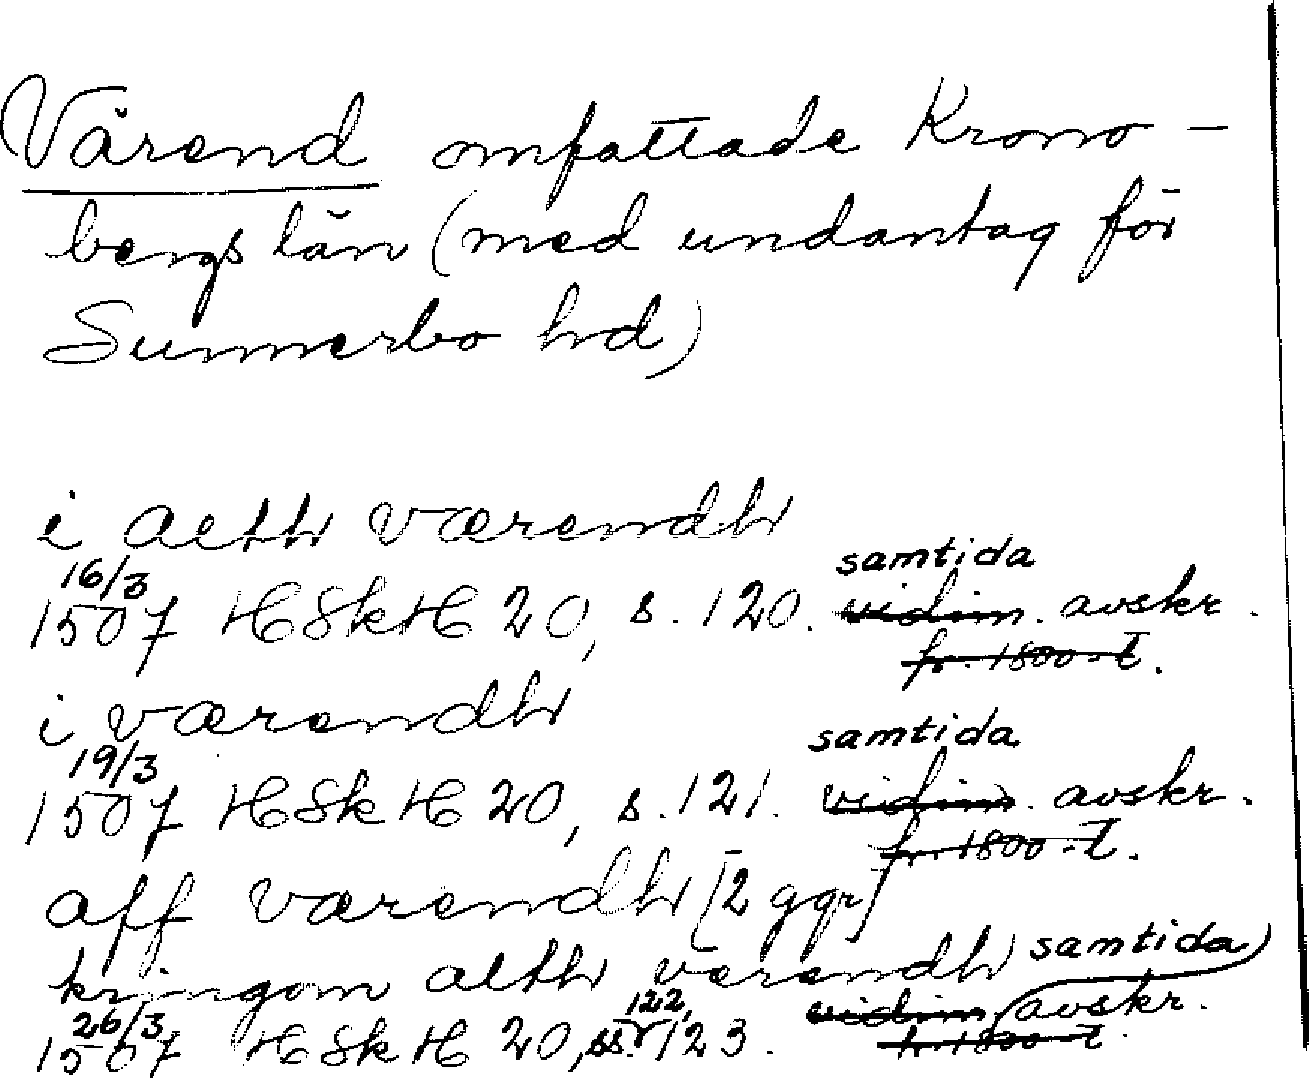 Värend omfattade Krono-
bergs län (med undantag för
Sunnerbo hd)
i alth værendh
16/3 samtida
1507 HSkH 20, s. 120. vidim. avskr.
fr. 1800-t.
i værendh
19/3 samtida
1507 HSkH 20, s. 121. vidim. avskr.
fr. 1800-t.
aff værendh [2 ggr]
kringom alth værendh samtida
26/3 122,
1507 HSkH 20, ss. 123. vidim. avskr.
fr. 1800-t.